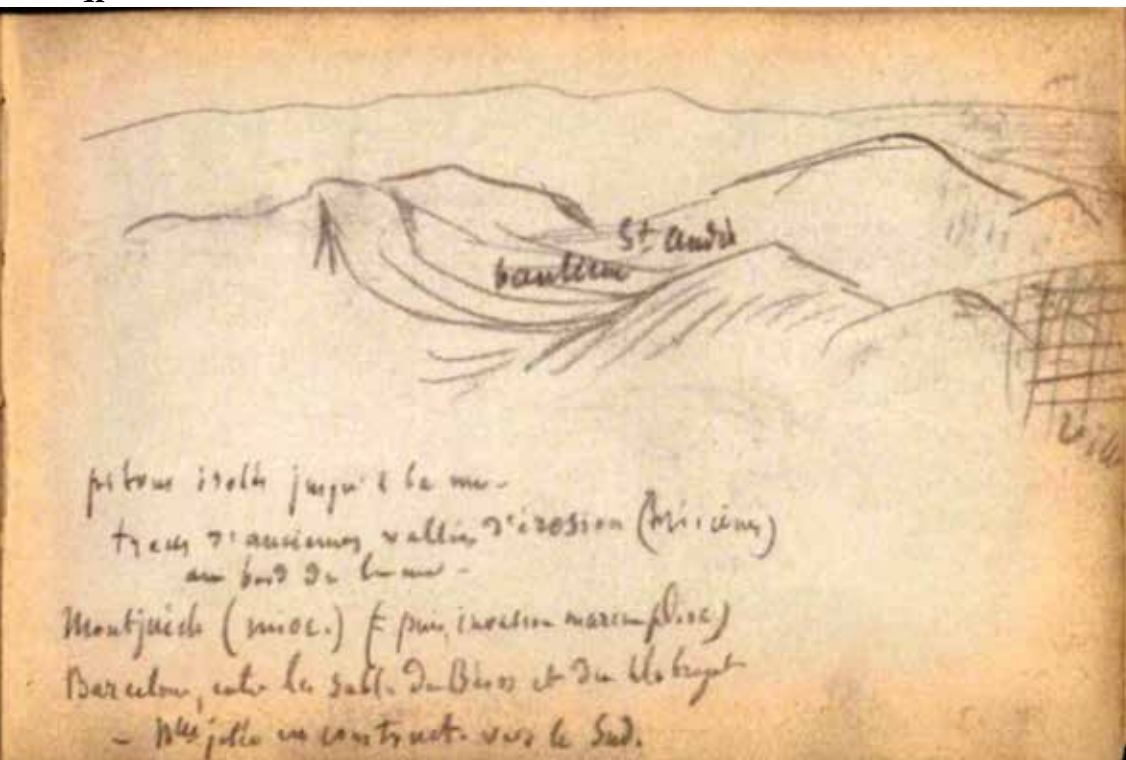 St André
banlieue
Ville
pitons isolés jusqu'à la mer
traces d'anciennes vallées d'érosion
au bord de la mer -
Montjuich (mioc.) (E puis, invasion marine plioc)
Barcelone, entre les deltas du Bésos et du Llobregat
- Nlle jetée en construct. vers le Sud.